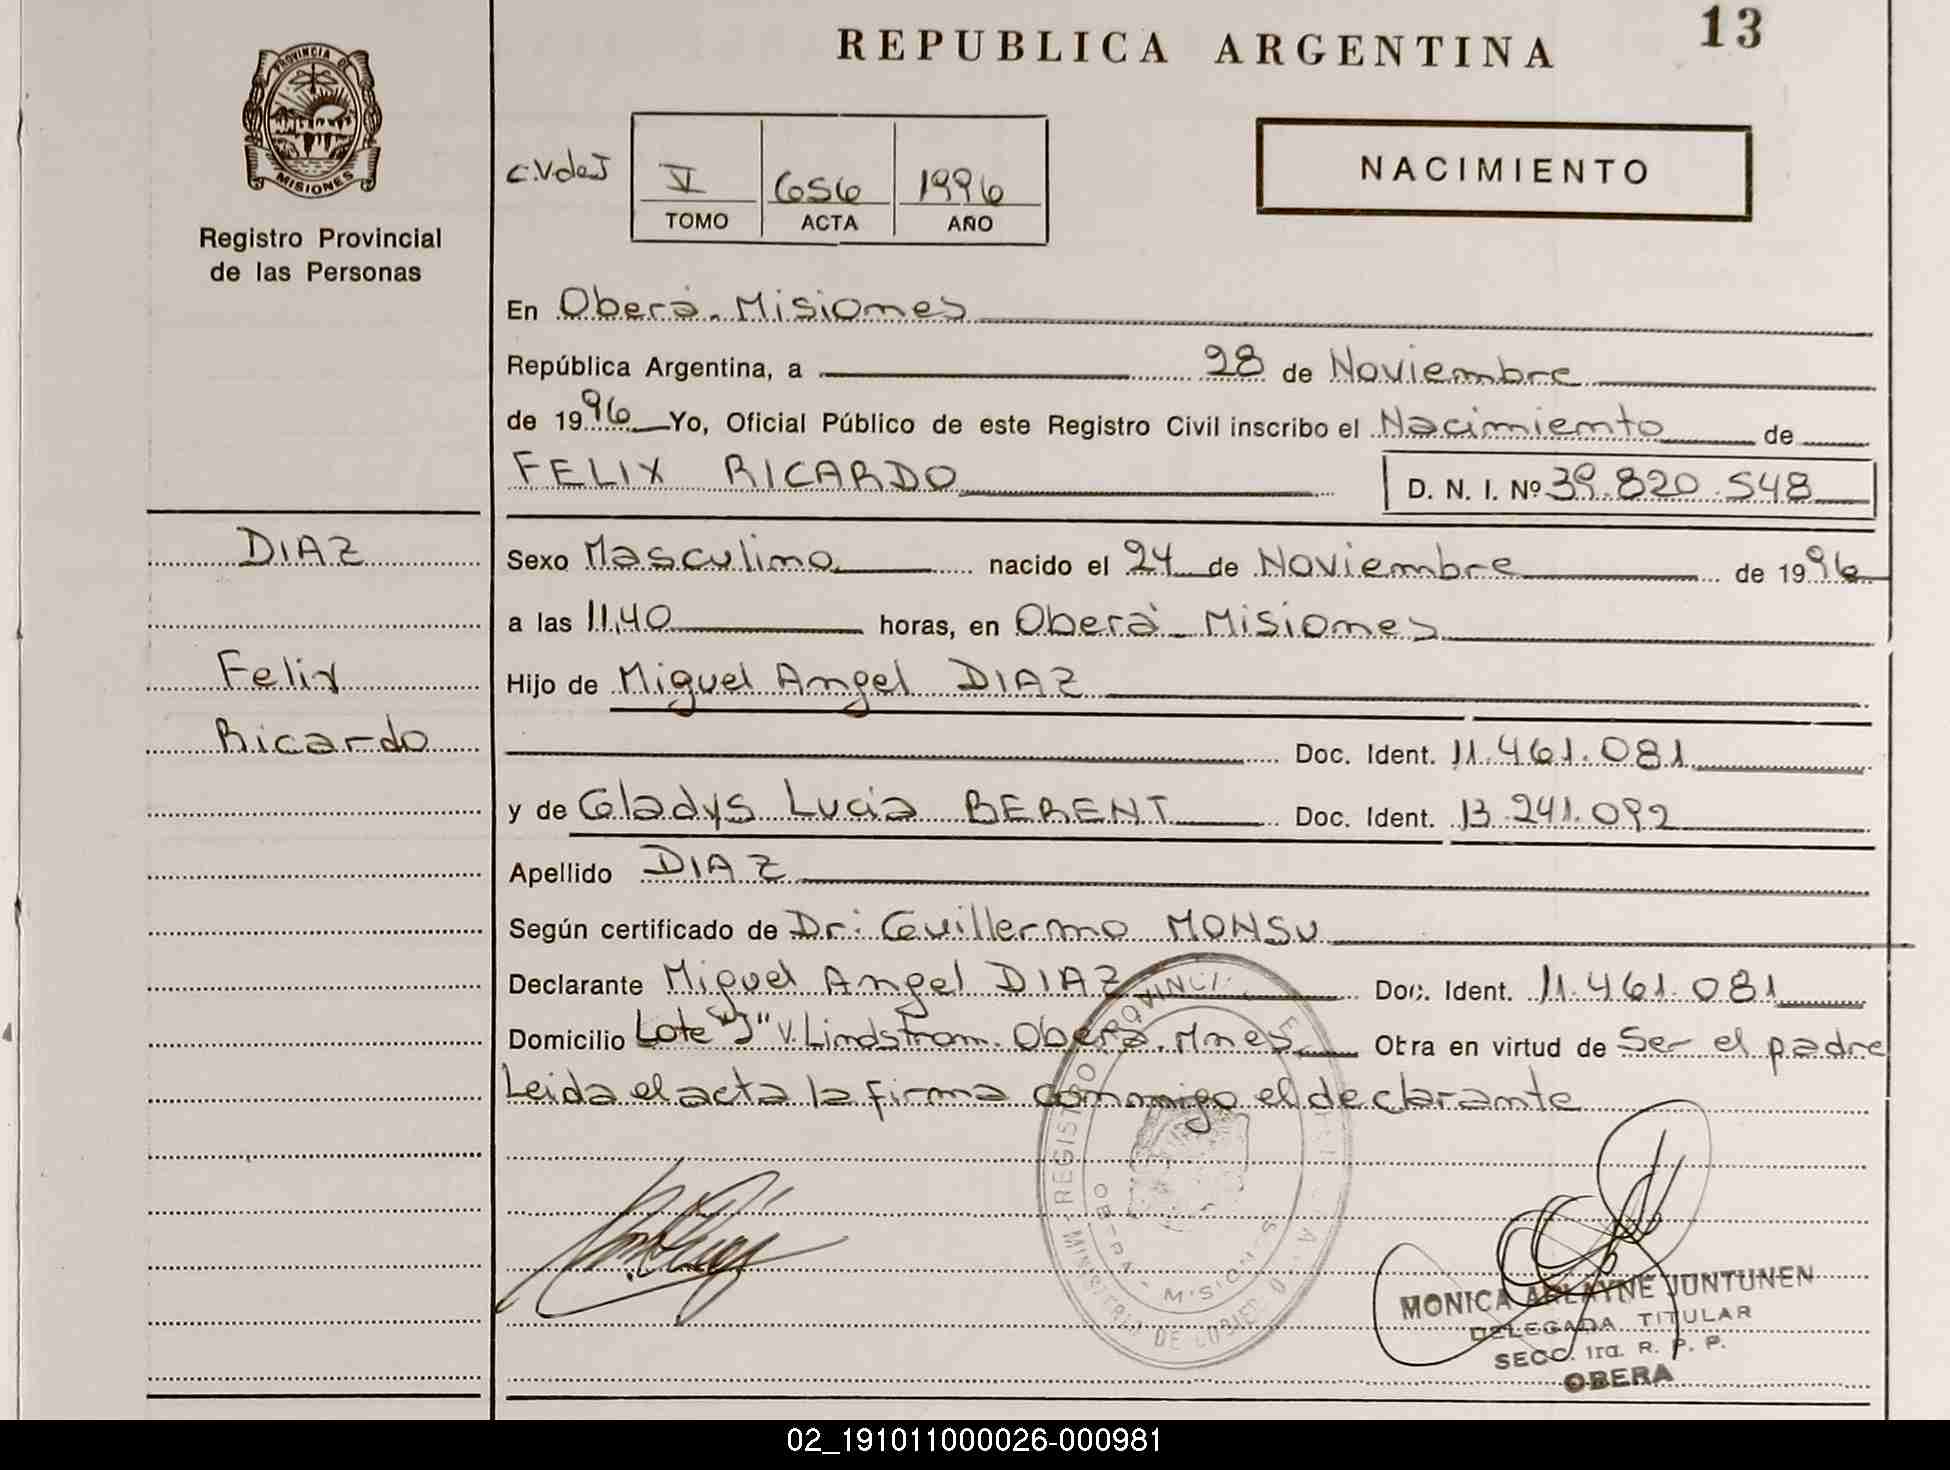 PROVINCIA DE
MISIONES
Registro Provincial
de las Personas
DIAZ
Felix
Ricardo
REPUBLICA ARGENTINA
13
C.V.deJ
V 656 1996
TOMO ACTA AÑO
NACIMIENTO
En Oberá. Misiones
República Argentina, a 28 de Noviembre
de 1996 Yo, Oficial Público de este Registro Civil inscribo el Nacimiento de
FELIX RICARDO D. N. I. Nº 39.820.548
Sexo Masculino nacido el 24 de Noviembre de 1996
a las 11,40 horas, en Oberá - Misiones
Hijo de Miguel Angel DIAZ
Doc. Ident. 11.461.081
y de Gladys Lucia BERENT Doc. Ident. 13.241.092
Apellido DIAZ
Según certificado de Dr: Guillermo MONSU
Declarante Miguel Angel DIAZ Doc. Ident. 11.461.081
Domicilio Lote "J" V. Lindstrom. Oberá. Mnes Obra en virtud de Ser el padre
Leida el acta la firma conmigo el declarante
REGISTRO PROVINCIAL
MINISTERIO DE GOBIERNO
OBERA - MISIONES
MONICA ARLAYNE JUNTUNEN
DELEGADA TITULAR
SECC. 1ra. R. P. P.
OBERA
02_191011000026-000981